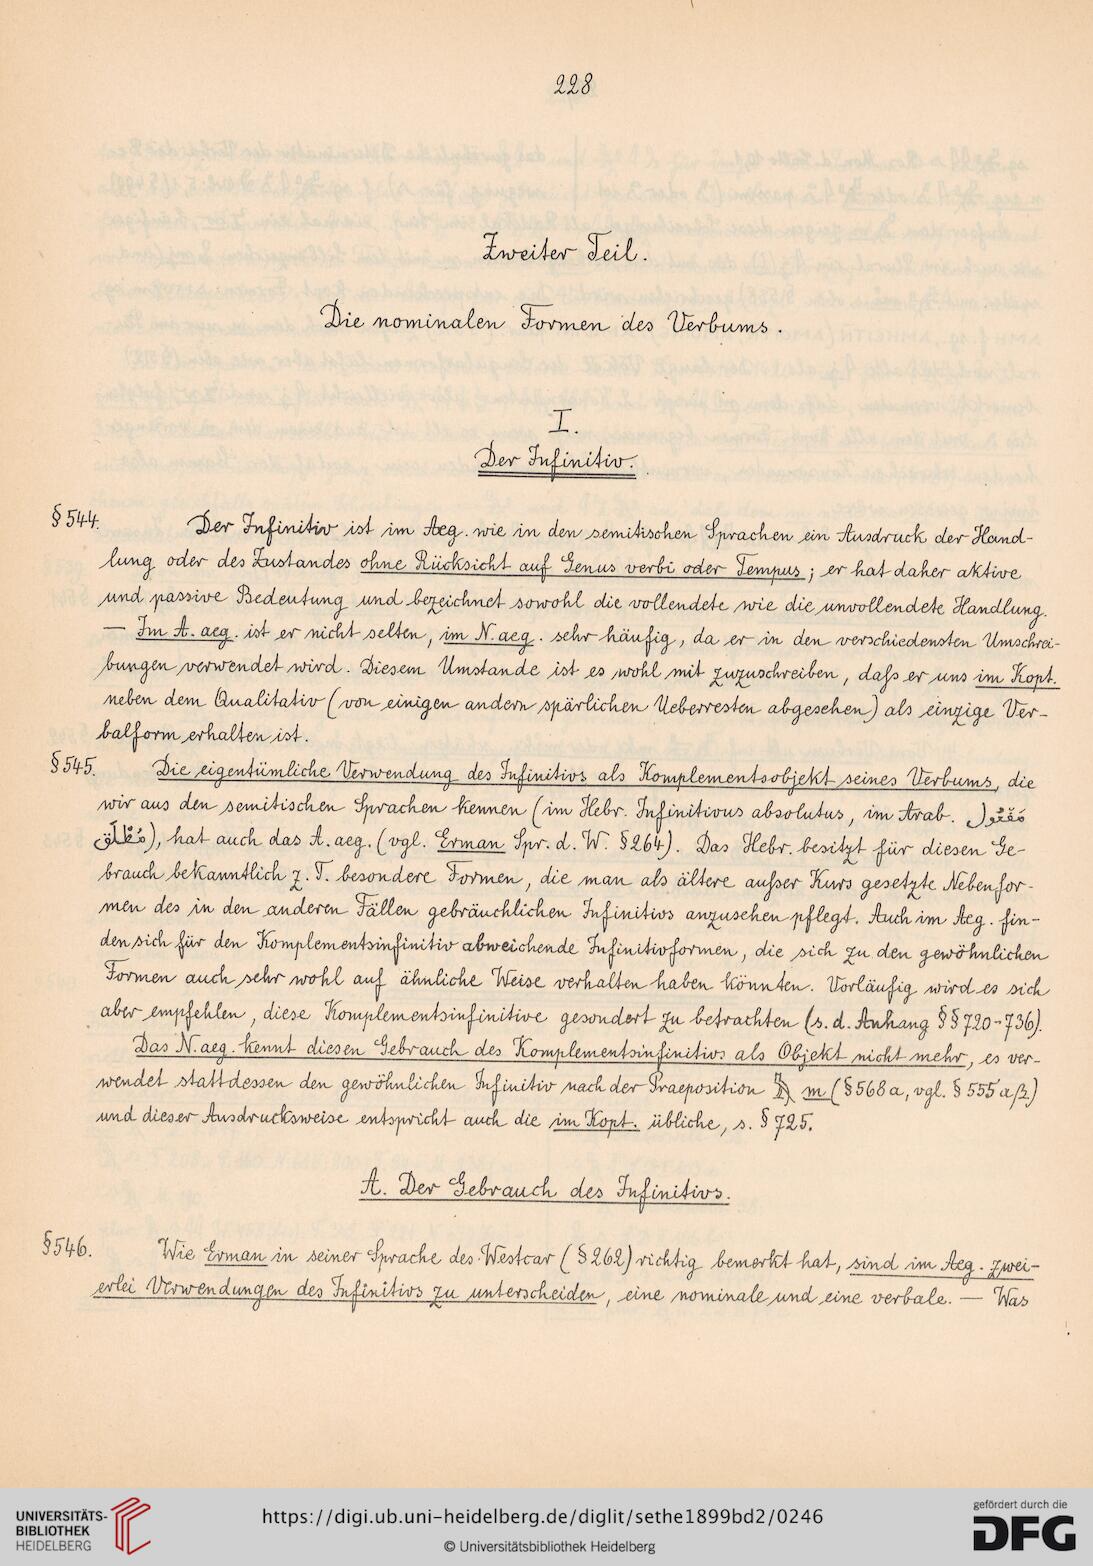 228
Zweiter Teil.
Die nominalen Formen des Verbums.
I.
Der Infinitiv.
§ 544. Der Infinitiv ist im Aeg. wie in den semitischen Sprachen ein Ausdruck der Hand-
lung oder des Zustandes ohne Rücksicht auf Genus verbi oder Tempus; er hat daher aktive
und passive Bedeutung und bezeichnet sowohl die vollendete wie die unvollendete Handlung.
— Im A. aeg. ist er nicht selten, im N. aeg. sehr häufig, da er in den verschiedensten Umschrei-
bungen verwendet wird. Diesem Umstande ist es wohl mit zuzuschreiben, daſs er uns im Kopt.
neben dem Qualitativ (von einigen andern spärlichen Ueberresten abgesehen) als einzige Ver-
balform erhalten ist.
§ 545. Die eigentümliche Verwendung des Infinitivs als Komplementsobjekt seines Verbums, die
wir aus den semitischen Sprachen kennen (im Hebr. Infinitivus absolutus, im Arab. مَفْعُول
مُطْلَق), hat auch das A. aeg. (vgl. Erman Spr. d. W. § 264). Das Hebr. besitzt für diesen Ge-
brauch bekanntlich z. T. besondere Formen, die man als ältere auſser Kurs gesetzte Nebenfor-
men des in den anderen Fällen gebräuchlichen Infinitivs anzusehen pflegt. Auch im Aeg. fin-
den sich für den Komplementsinfinitiv abweichende Infinitivformen, die sich zu den gewöhnlichen
Formen auch sehr wohl auf ähnliche Weise verhalten haben könnten. Vorläufig wird es sich
aber empfehlen, diese Komplementsinfinitive gesondert zu betrachten (s. d. Anhang §§ 720-736).
Das N. aeg. kennt diesen Gebrauch des Komplementsinfinitivs als Objekt nicht mehr, es ver-
wendet stattdessen den gewöhnlichen Infinitiv nach der Praeposition 𓅓 m (§ 568a, vgl. § 555 aβ.)
und dieser Ausdrucksweise entspricht auch die im Kopt. übliche, s. § 725.
A. Der Gebrauch des Infinitivs.
§ 546. Wie Erman in seiner Sprache des Westcar (§ 262) richtig bemerkt hat, sind im Aeg. zwei-
erlei Verwendungen des Infinitivs zu unterscheiden, eine nominale und eine verbale. — Was
UNIVERSITÄTS-
BIBLIOTHEK
HEIDELBERG
https://digi.ub.uni-heidelberg.de/diglit/sethe1899bd2/0246
© Universitätsbibliothek Heidelberg
gefördert durch die
DFG